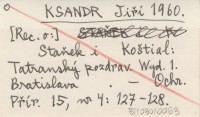 KSANDR Jiří 1960.
[Rec. o:]
Staněk i Koštial:
Tatranský pozdrav. Wyd. 1.
Bratislava. – Ochr.
Přír. 15, nr 4: 127–128.